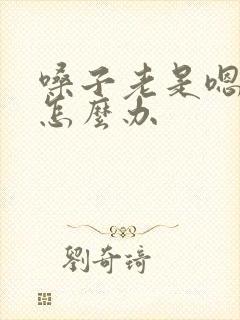 嗓子老是嗯
怎麼办
劉奇琦